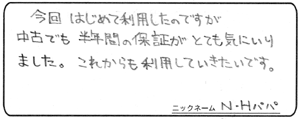 今回 はじめて利用したのですが
中古でも 半年間の保証が とても気にいり
ました。これからも利用していきたいです。
ニックネーム N・Hパパ